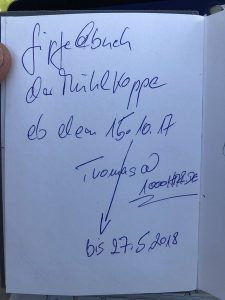 Gipfelbuch
der Mühlkoppe
ab dem 15.10.17
Thomas@
1000HM.DE
bis 27.5.2018